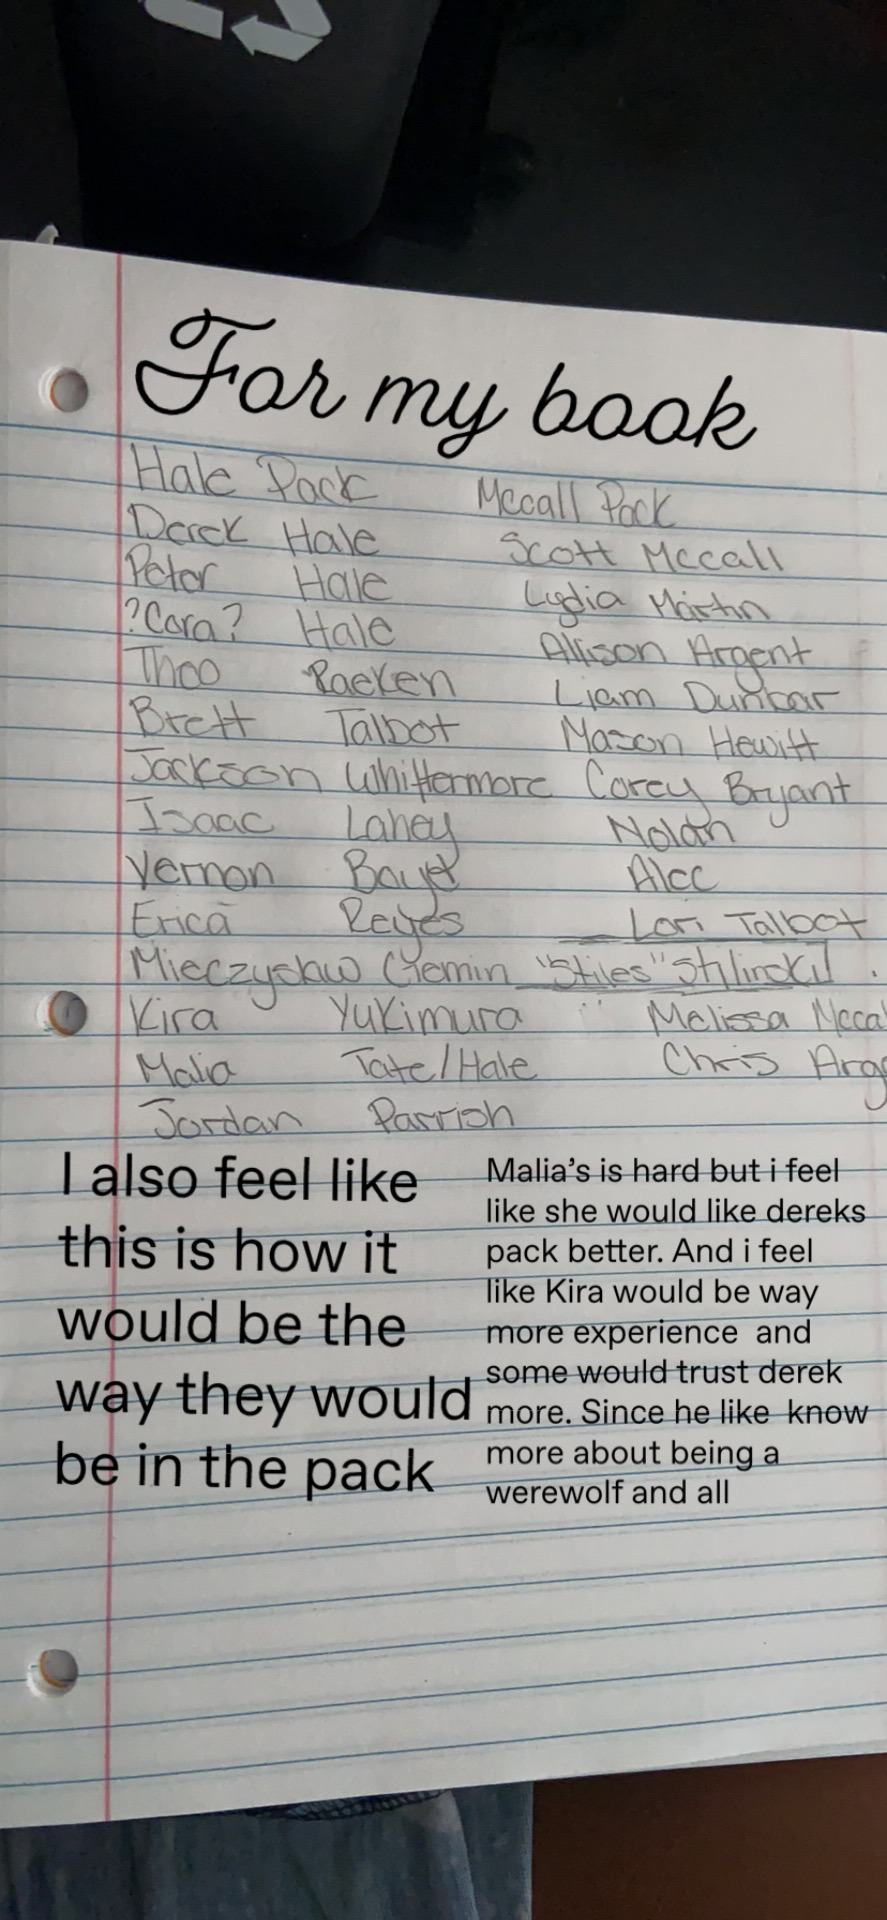 For my book
Hale Pack Mccall Pack
Derek Hale Scott Mccall
Peter Hale Lydia Martin
?Cora? Hale Allison Argent
Theo Raeken Liam Dunbar
Brett Talbot Mason Hewitt
Jackson Whittermore Corey Bryant
Isaac Lahey Nolan
Vernon Boyd Alec
Erica Reyes Lori Talbot
Mieczyslaw "Stiles" Stilinski
Kira Yukimura Melissa Mccal
Malia Tate/Hale Chris Arg
Jordan Parrish
I also feel like
this is how it
would be the
way they would
be in the pack
Malia's is hard but i feel
like she would like dereks
pack better. And i feel
like Kira would be way
more experience and
some would trust derek
more. Since he like know
more about being a
werewolf and all